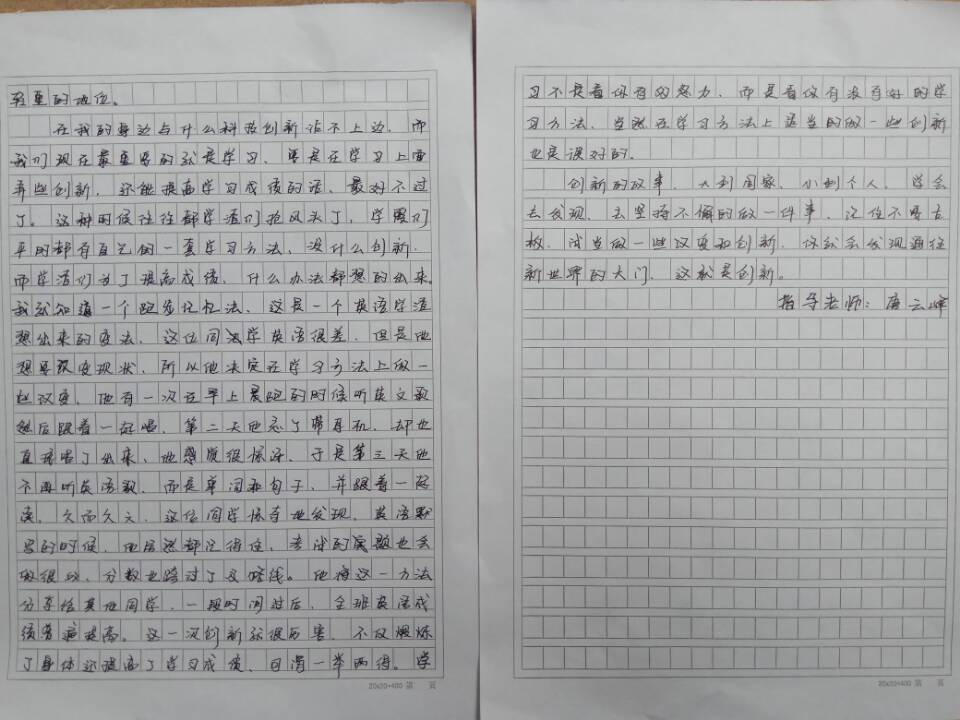 轻重的地位。
在我的身边与什么科技创新沾不上边，而
我们现在最重要的就是学习，要是在学习上面
弄些创新，还能提高学习成绩的话，最好不过
了。这种时候往往都学渣们抢风头了，学霸们
平时都有自己的一套学习方法，没什么创新，
而学渣们为了提高成绩，什么办法都想的出来。
我就知道一个跑步记忆法，这是一个英语学渣
想出来的方法，这位同学英语很差，但是他
想要改变现状，所以他决定在学习方法上做一
些改变，他有一次在早上晨跑的时候听英文歌
然后跟着一起唱，第二天他忘了带耳机，却也
直接唱了出来，他感觉很惊讶，于是第三天他
不再听英语歌，而是单词和句子，并跟着一起
读。久而久之，这位同学惊奇地发现，英语默
写的时候，他居然都记得住，考试的题也会
做很以，分数也跨过了及格线。他将这一方法
分享给其他同学，一段时间过后，全班英语成
绩普遍提高。这一次创新就很厉害，不仅锻炼
了身体还提高了学习成绩，可谓一举两得。学
习不是看你有多努力，而是看你有没有好的学
习方法，当然在学习方法上适当的做一些创新
也是误好的。
创新的故事，大到国家，小到个人，学会
去发现，去坚持不懈的做一件事，记住不要古
板，试当做一些改变和创新，你就会发现通往
新世界的大门，这就是创新。
指导老师：唐云
20×20=400 第 页
20×20=400 第 页